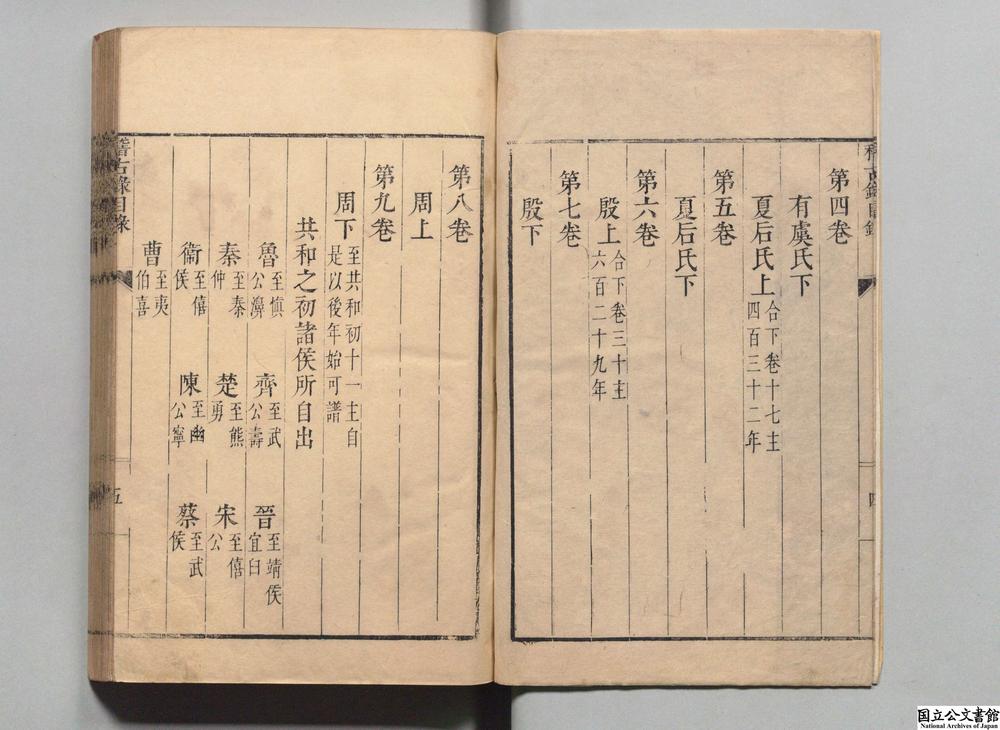 稽古錄目錄
四
第四卷
有虞氏下
夏后氏上合下卷十七主四百三十二年
第五卷
夏后氏下
第六卷
殷上合下卷三十主六百二十九年
第七卷
殷下
第八卷
周上
第九卷
周下至共和初十一主自是以後年始可譜
共和之初諸侯所自出
魯至愼公濞 齊至武公壽 晉至靖侯宜臼
秦至秦仲 楚至熊勇 宋至僖公
衞至僖侯 陳至幽公寧 蔡至武侯
曹至夷伯喜
稽古錄目錄
五
国立公文書館
National Archives of Japan